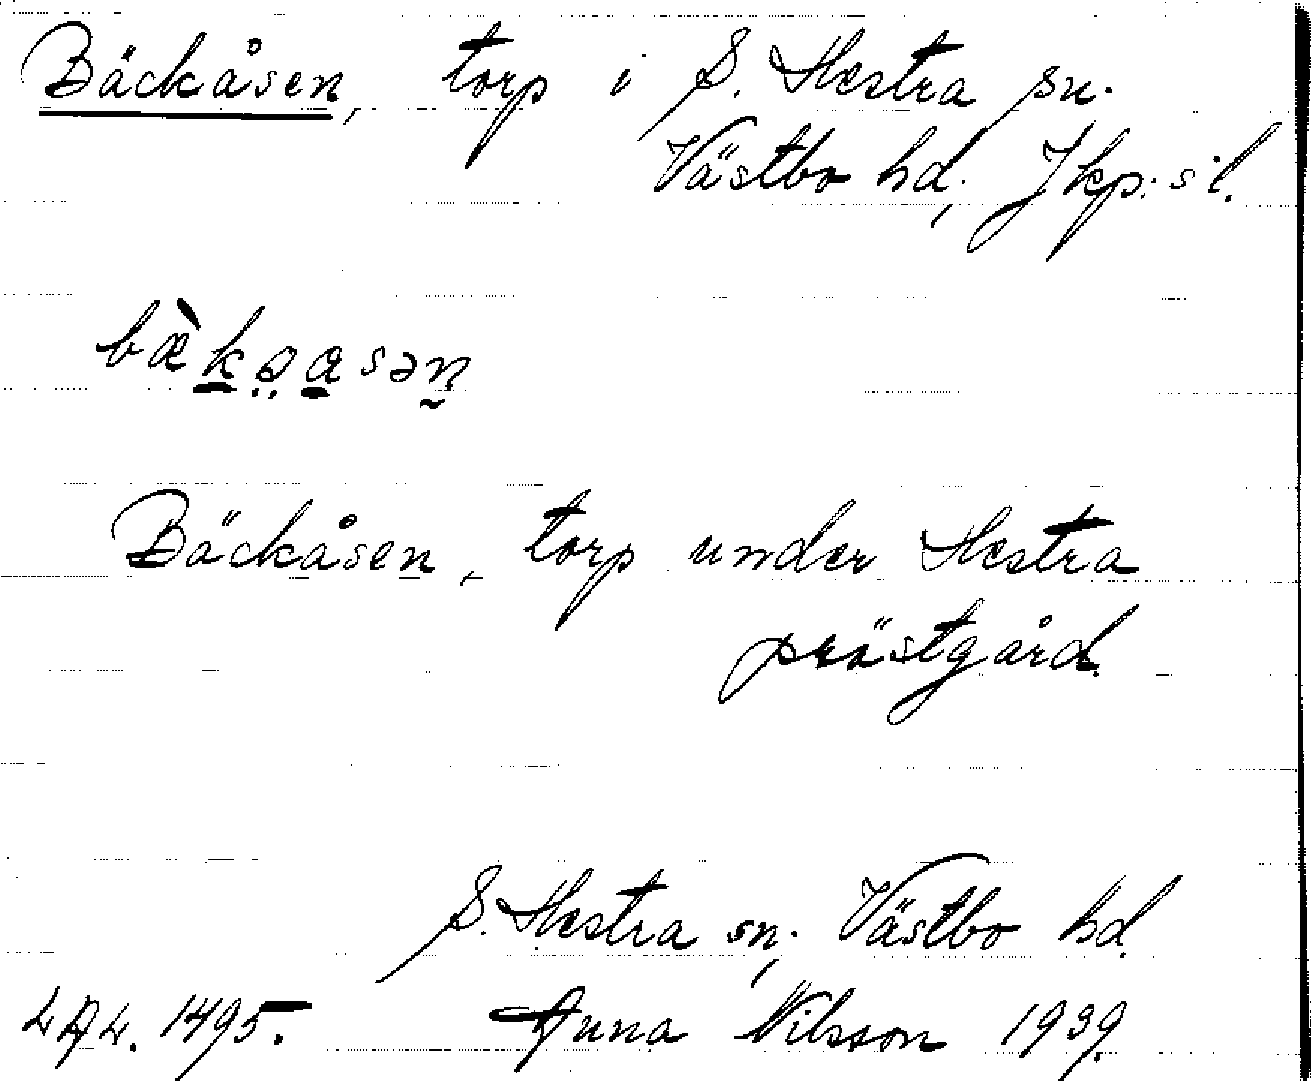 Bäckåsen, torp i S. Hestra sn.
Västbo hd, Jkp:s l.
Bäckåsen, torp under Hestra
prästgård.
S. Hestra sn, Västbo hd.
LAL. 1495. Anna Nilsson 1939.